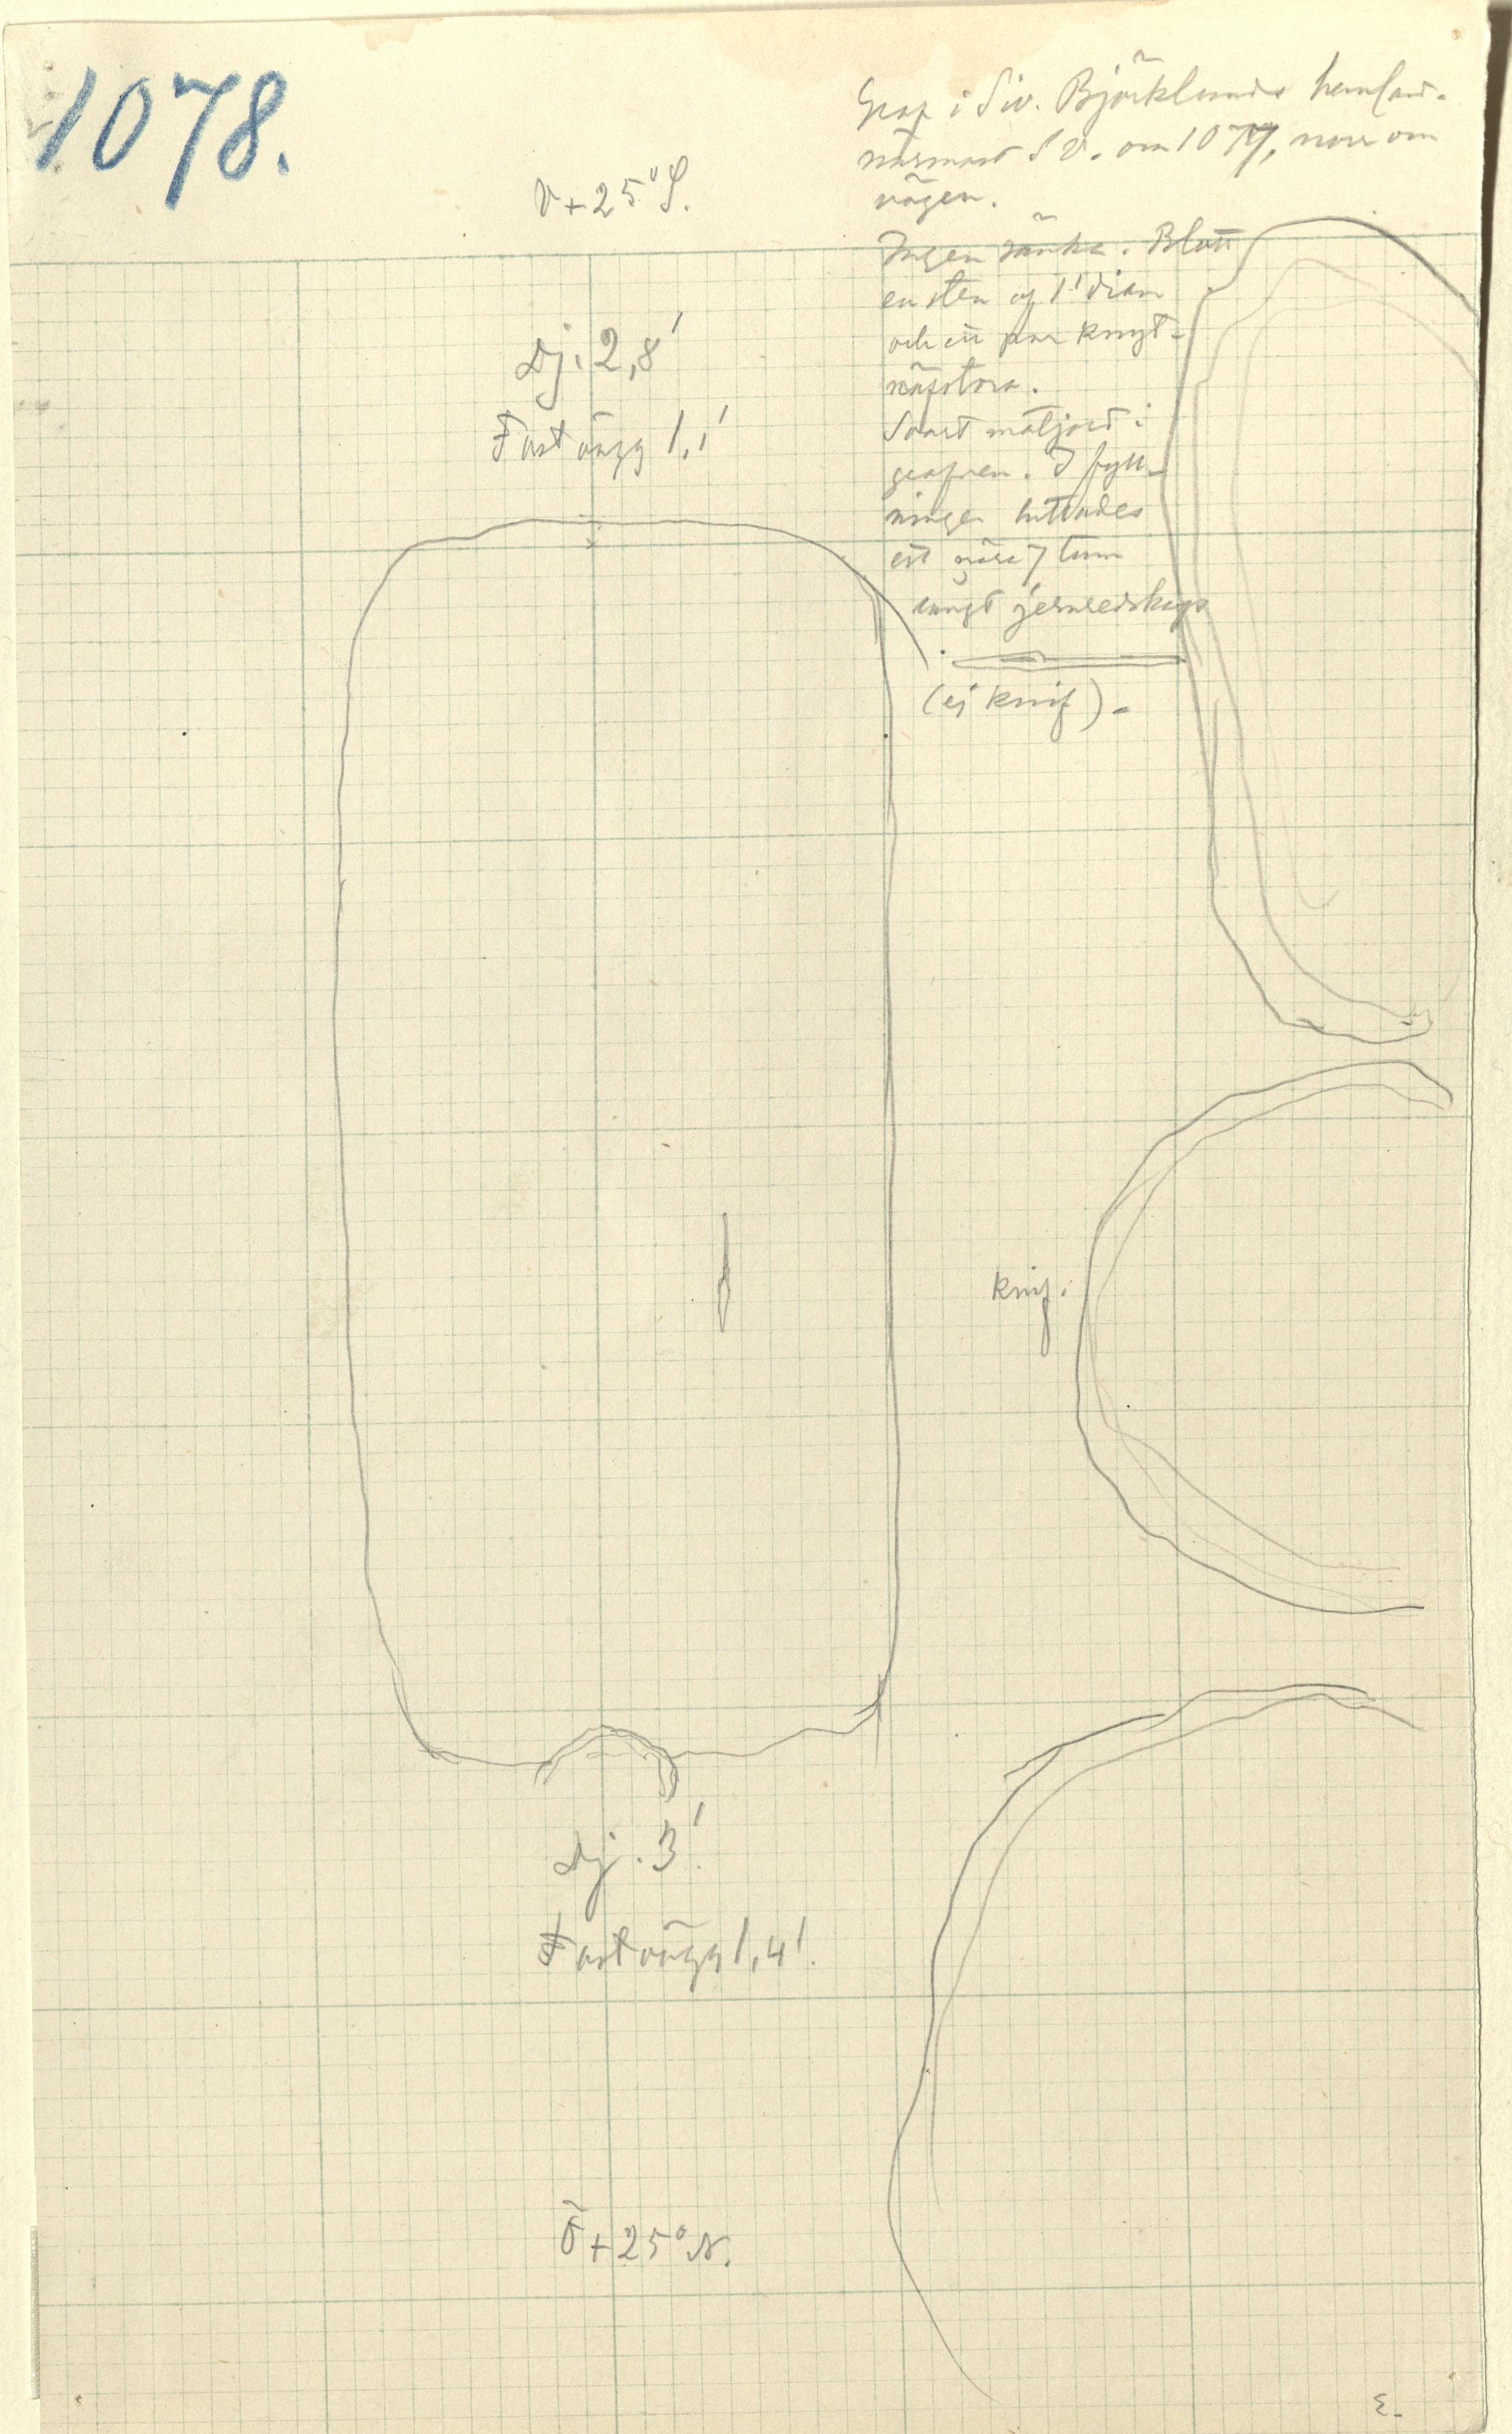 1078.
Graf i Siv. Björklunds hemland.
närmast S V. om 1077, norr om
vägen.
V + 25° S.
Ingen sänka. Blott
en sten af 1' diam
och ett par knyt-
näfstora.
Svart matjord i
grafven. I fyll-
ningen hittades
ett nära 7 tum
långt jernredskap
(ej knif).-
dj. 2,8'
Fast vägg 1,1'
knif.
dj. 3'.
Fast vägg 1,4'.
Ö + 25° N.